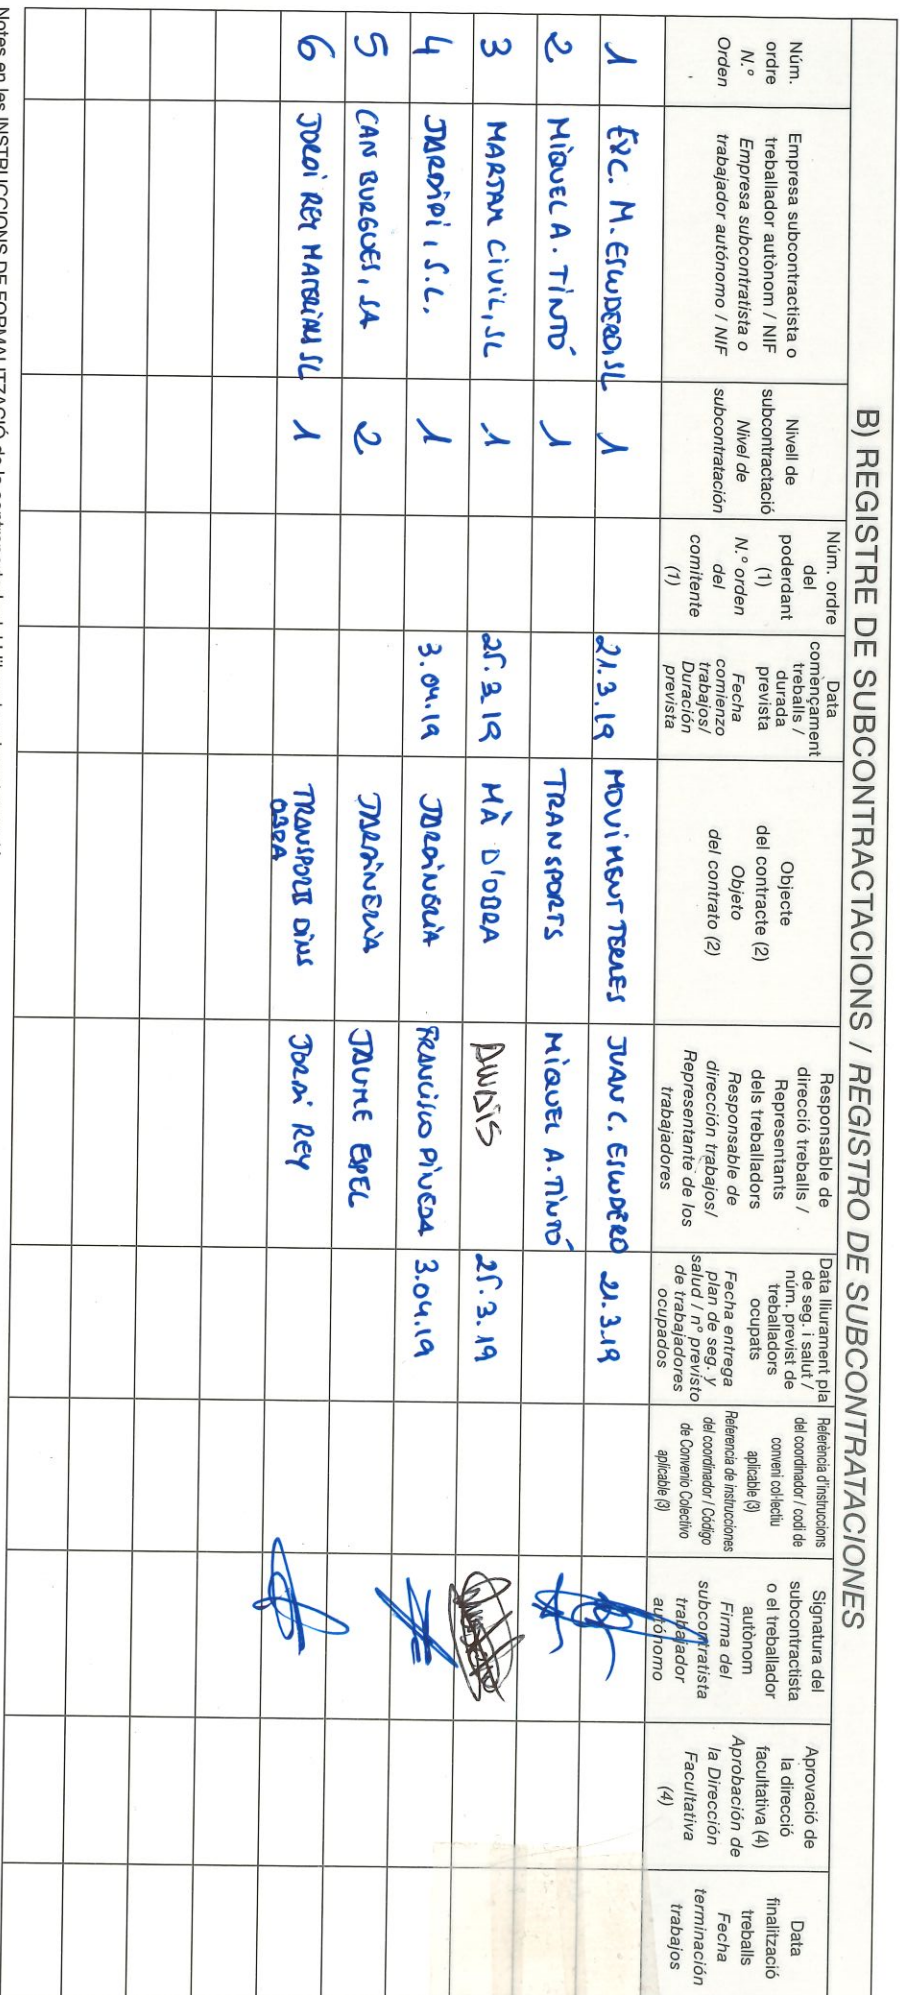 B) REGISTRE DE SUBCONTRACTACIONS / REGISTRO DE SUBCONTRATACIONES
Núm.
ordre
N.º
Orden
Empresa subcontractista o
treballador autònom / NIF
Empresa subcontratista o
trabajador autónomo / NIF
Nivell de
subcontractació
Nivel de
subcontratación
Núm. ordre
del
poderdant
(1)
N.º orden
del
comitente
(1)
Data
començament
treballs /
durada
prevista
Fecha
comienzo
trabajos/
Duración
prevista
Objecte
del contracte (2)
Objeto
del contrato (2)
Responsable de
direcció treballs /
Representants
dels treballadors
Responsable de
dirección trabajos/
Representante de los
trabajadores
Data lliurament pla
de seg. i salut /
núm. previst de
treballadors
ocupats
Fecha entrega
plan de seg. y
salud / nº previsto
de trabajadores
ocupados
Referència d'instruccions
del coordinador / codi de
conveni col·lectiu
aplicable (3)
Referencia de instrucciones
del coordinador / Código
de Convenio Colectivo
aplicable (3)
Signatura del
subcontractista
o el treballador
autònom
Firma del
subcontratista
trabajador
autónomo
Aprovació de
la direcció
facultativa (4)
Aprobación de
la Dirección
Facultativa
(4)
Data
finalització
treballs
Fecha
terminación
trabajos
1 EXC. M. ESCUDERO, SL 1 21.3.19 MOVIMENT TERRES JUAN C. ESCUDERO 21.3.19
2 MIQUEL A. TINTÓ 1 TRANSPORTS MIQUEL A. TINTÓ
3 MARJAM CIVIL, SL 1 25.3.19 MÀ D'OBRA 25.3.19
4 JARDIPI, S.L. 1 3.04.19 JARDINERIA FRANCISCO PINEDA 3.04.19
5 CAN BURGUES, SA 2 JARDINERIA JAUME ESPEL
6 JORDI REY MATERIALS SL 1 TRANSPORTS DINS JORDI REY
OBRA
Notes en les INSTRUCCIONS DE FORMALITZACIÓ de la